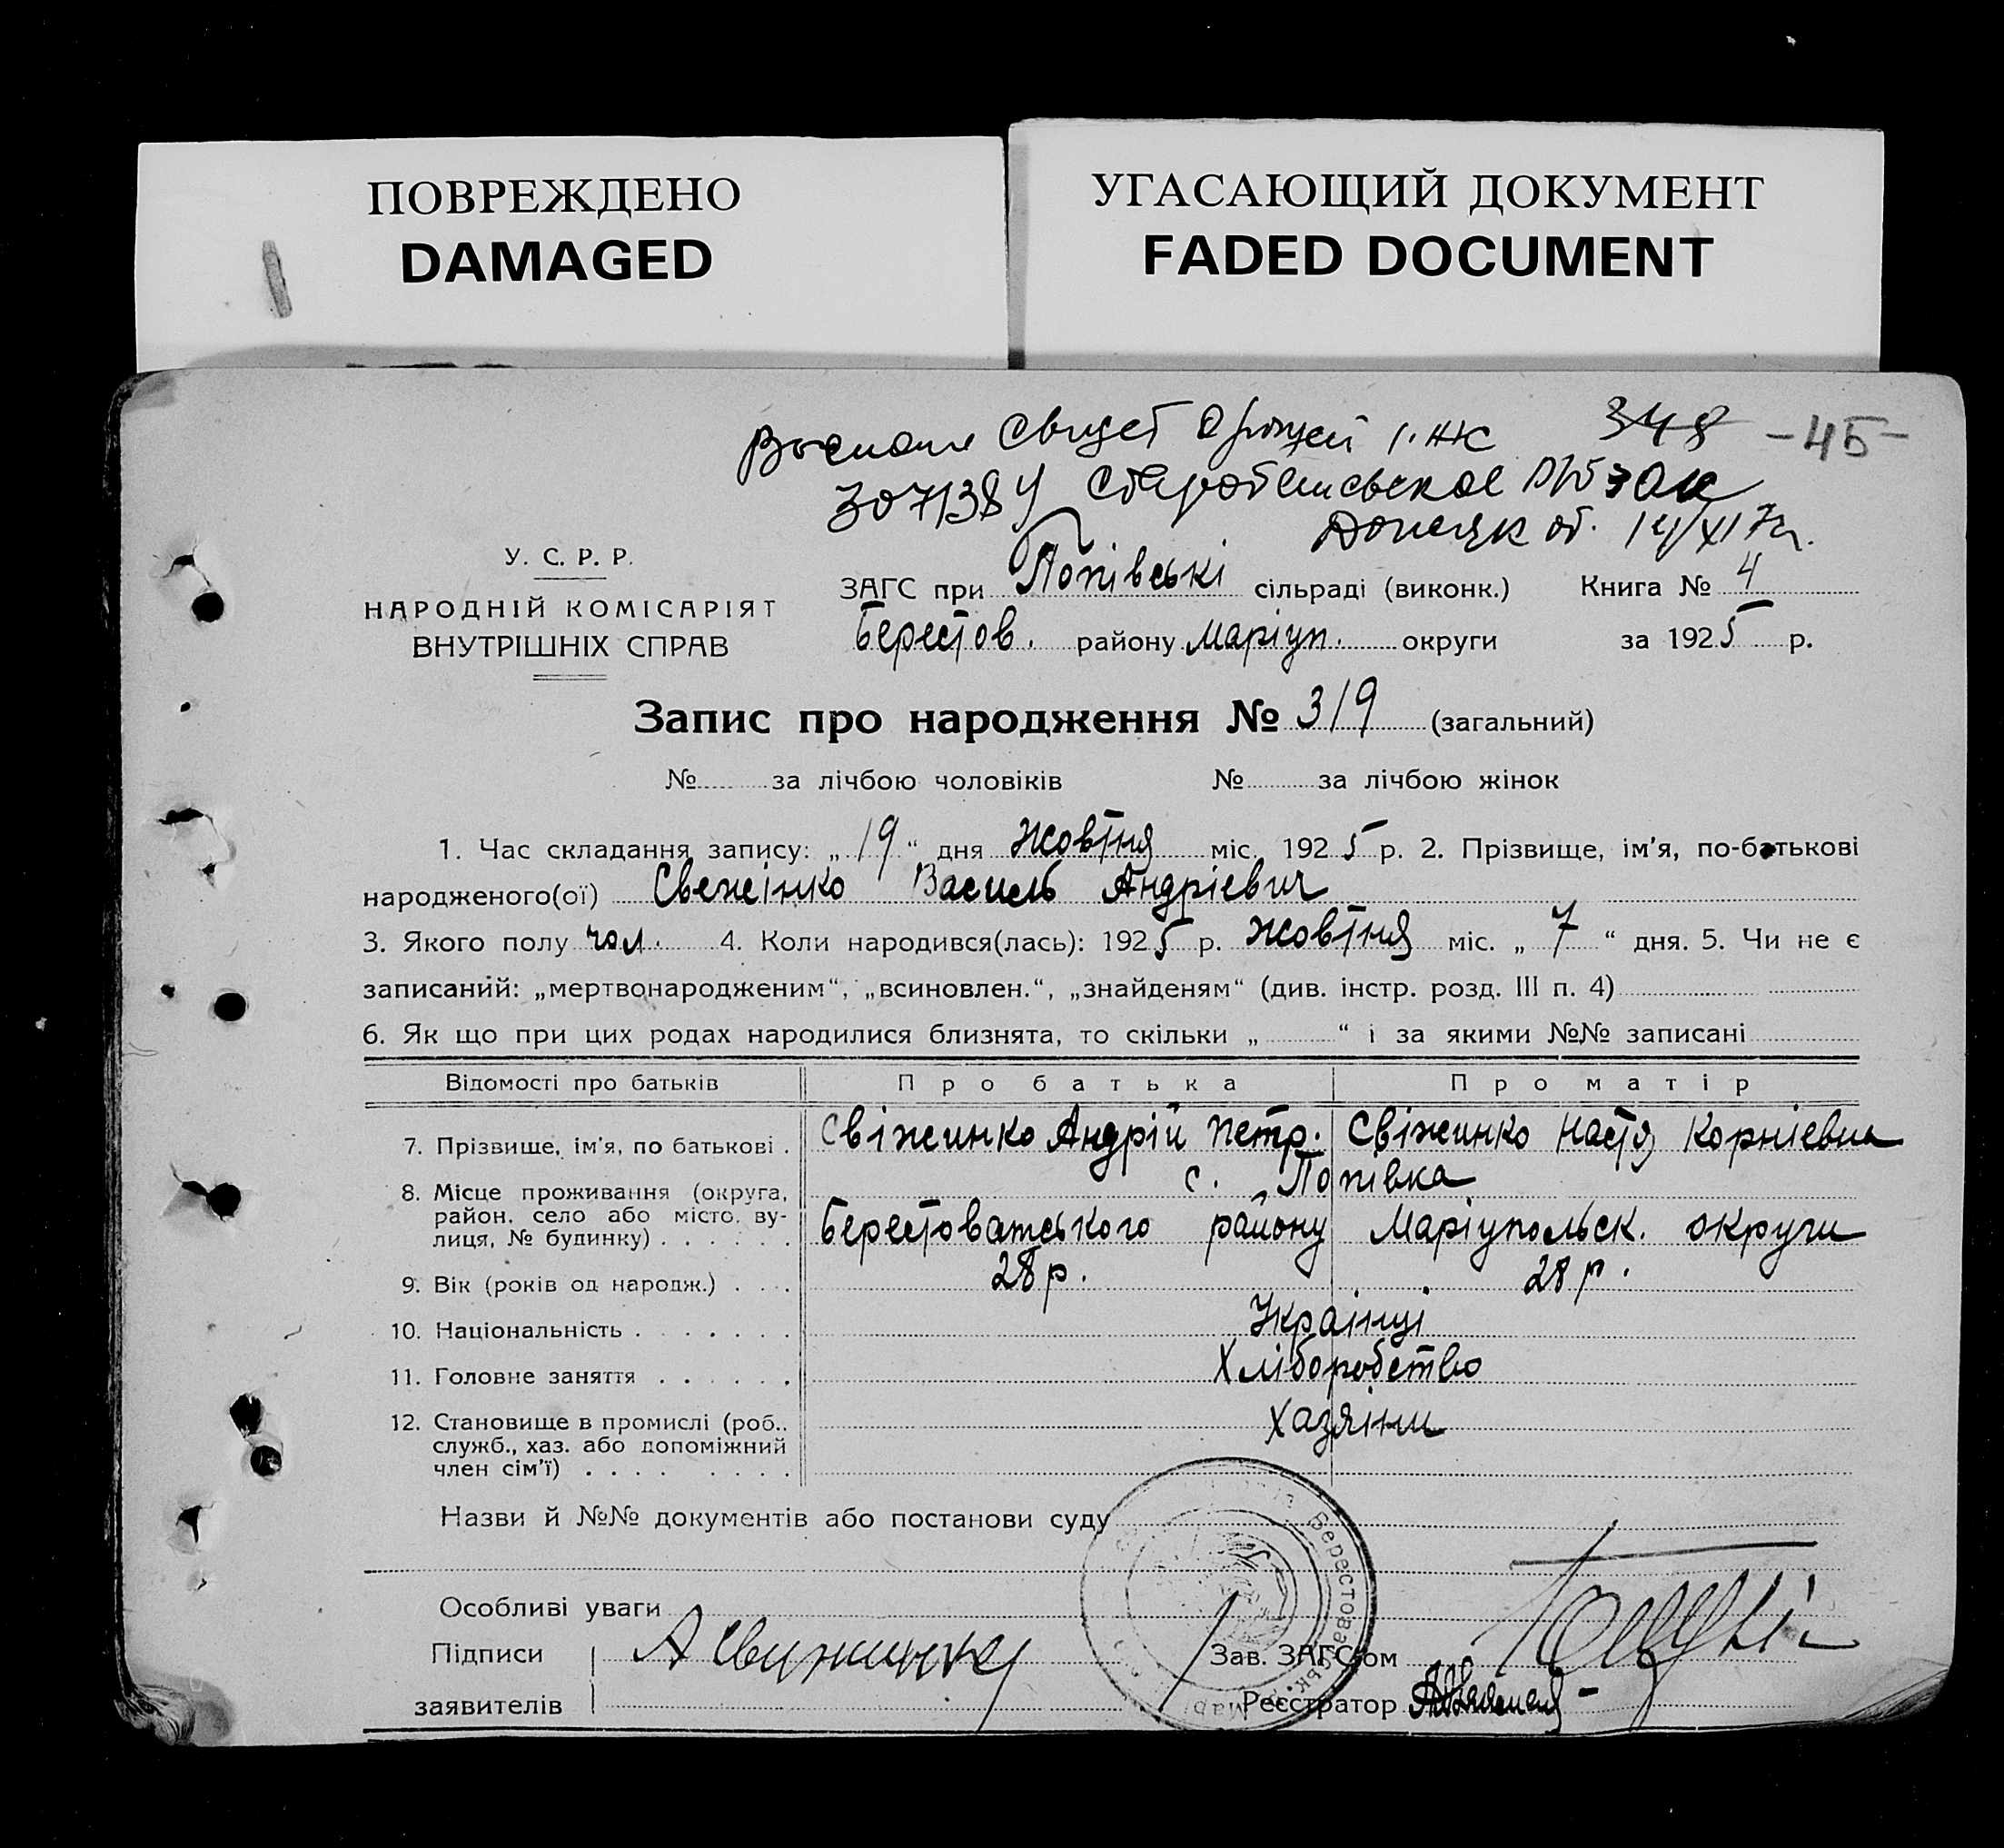 ПОВРЕЖДЕНО
DAMAGED
УГАСАЮЩИЙ ДОКУМЕНТ
FADED DOCUMENT
348 -45-
307138
Донецк об. 14/XI 7
У. С. Р. Р.
НАРОДНІЙ КОМІСАРІЯТ
ВНУТРІШНІХ СПРАВ
ЗАГС при Попівські сільраді (виконк.) Книга № 4
Берестов. району Маріуп. округи за 1925 р.
Запис про народження № 319 (загальний)
№ за лічбою чоловіків № за лічбою жінок
1. Час складання запису: „19“ дня жовтня міс. 1925 р. 2. Прізвище, ім'я, по-батькові
народженого(ої) Свежінко Василь Андріевич
3. Якого полу чол. 4. Коли народився(лась): 1925 р. жовтня міс. „7“ дня. 5. Чи не є
записаний: „мертвонародженим“, „всиновлен.“, „знайденям“ (див. інстр. розд. III п. 4)
6. Як що при цих родах народилися близнята, то скільки „ “ і за якими №№ записані
Відомості про батьків Про батька Про матір
7. Прізвище, ім'я, по батькові . Свіжинко Андрій Петр. Свіжинко Настя Корніевна
8. Місце проживання (округа, с. Попівка
район, село або місто, ву-
лиця, № будинку) . . . . . . Берестоватського району Маріупольск. округи
9. Вік (років од народж.) . . . 28 р. 28 р.
10. Національність . . . . . . . Українці
11. Головне заняття . . . . . . Хліборобство
12. Становище в промислі (роб., Хазяіни
служб., хаз. або допоміжний
член сім'ї) . . . . . . . .
Назви й №№ документів або постанови суду
Особливі уваги
Підписи Зав. ЗАГС'ом
заявителів Реєстратор